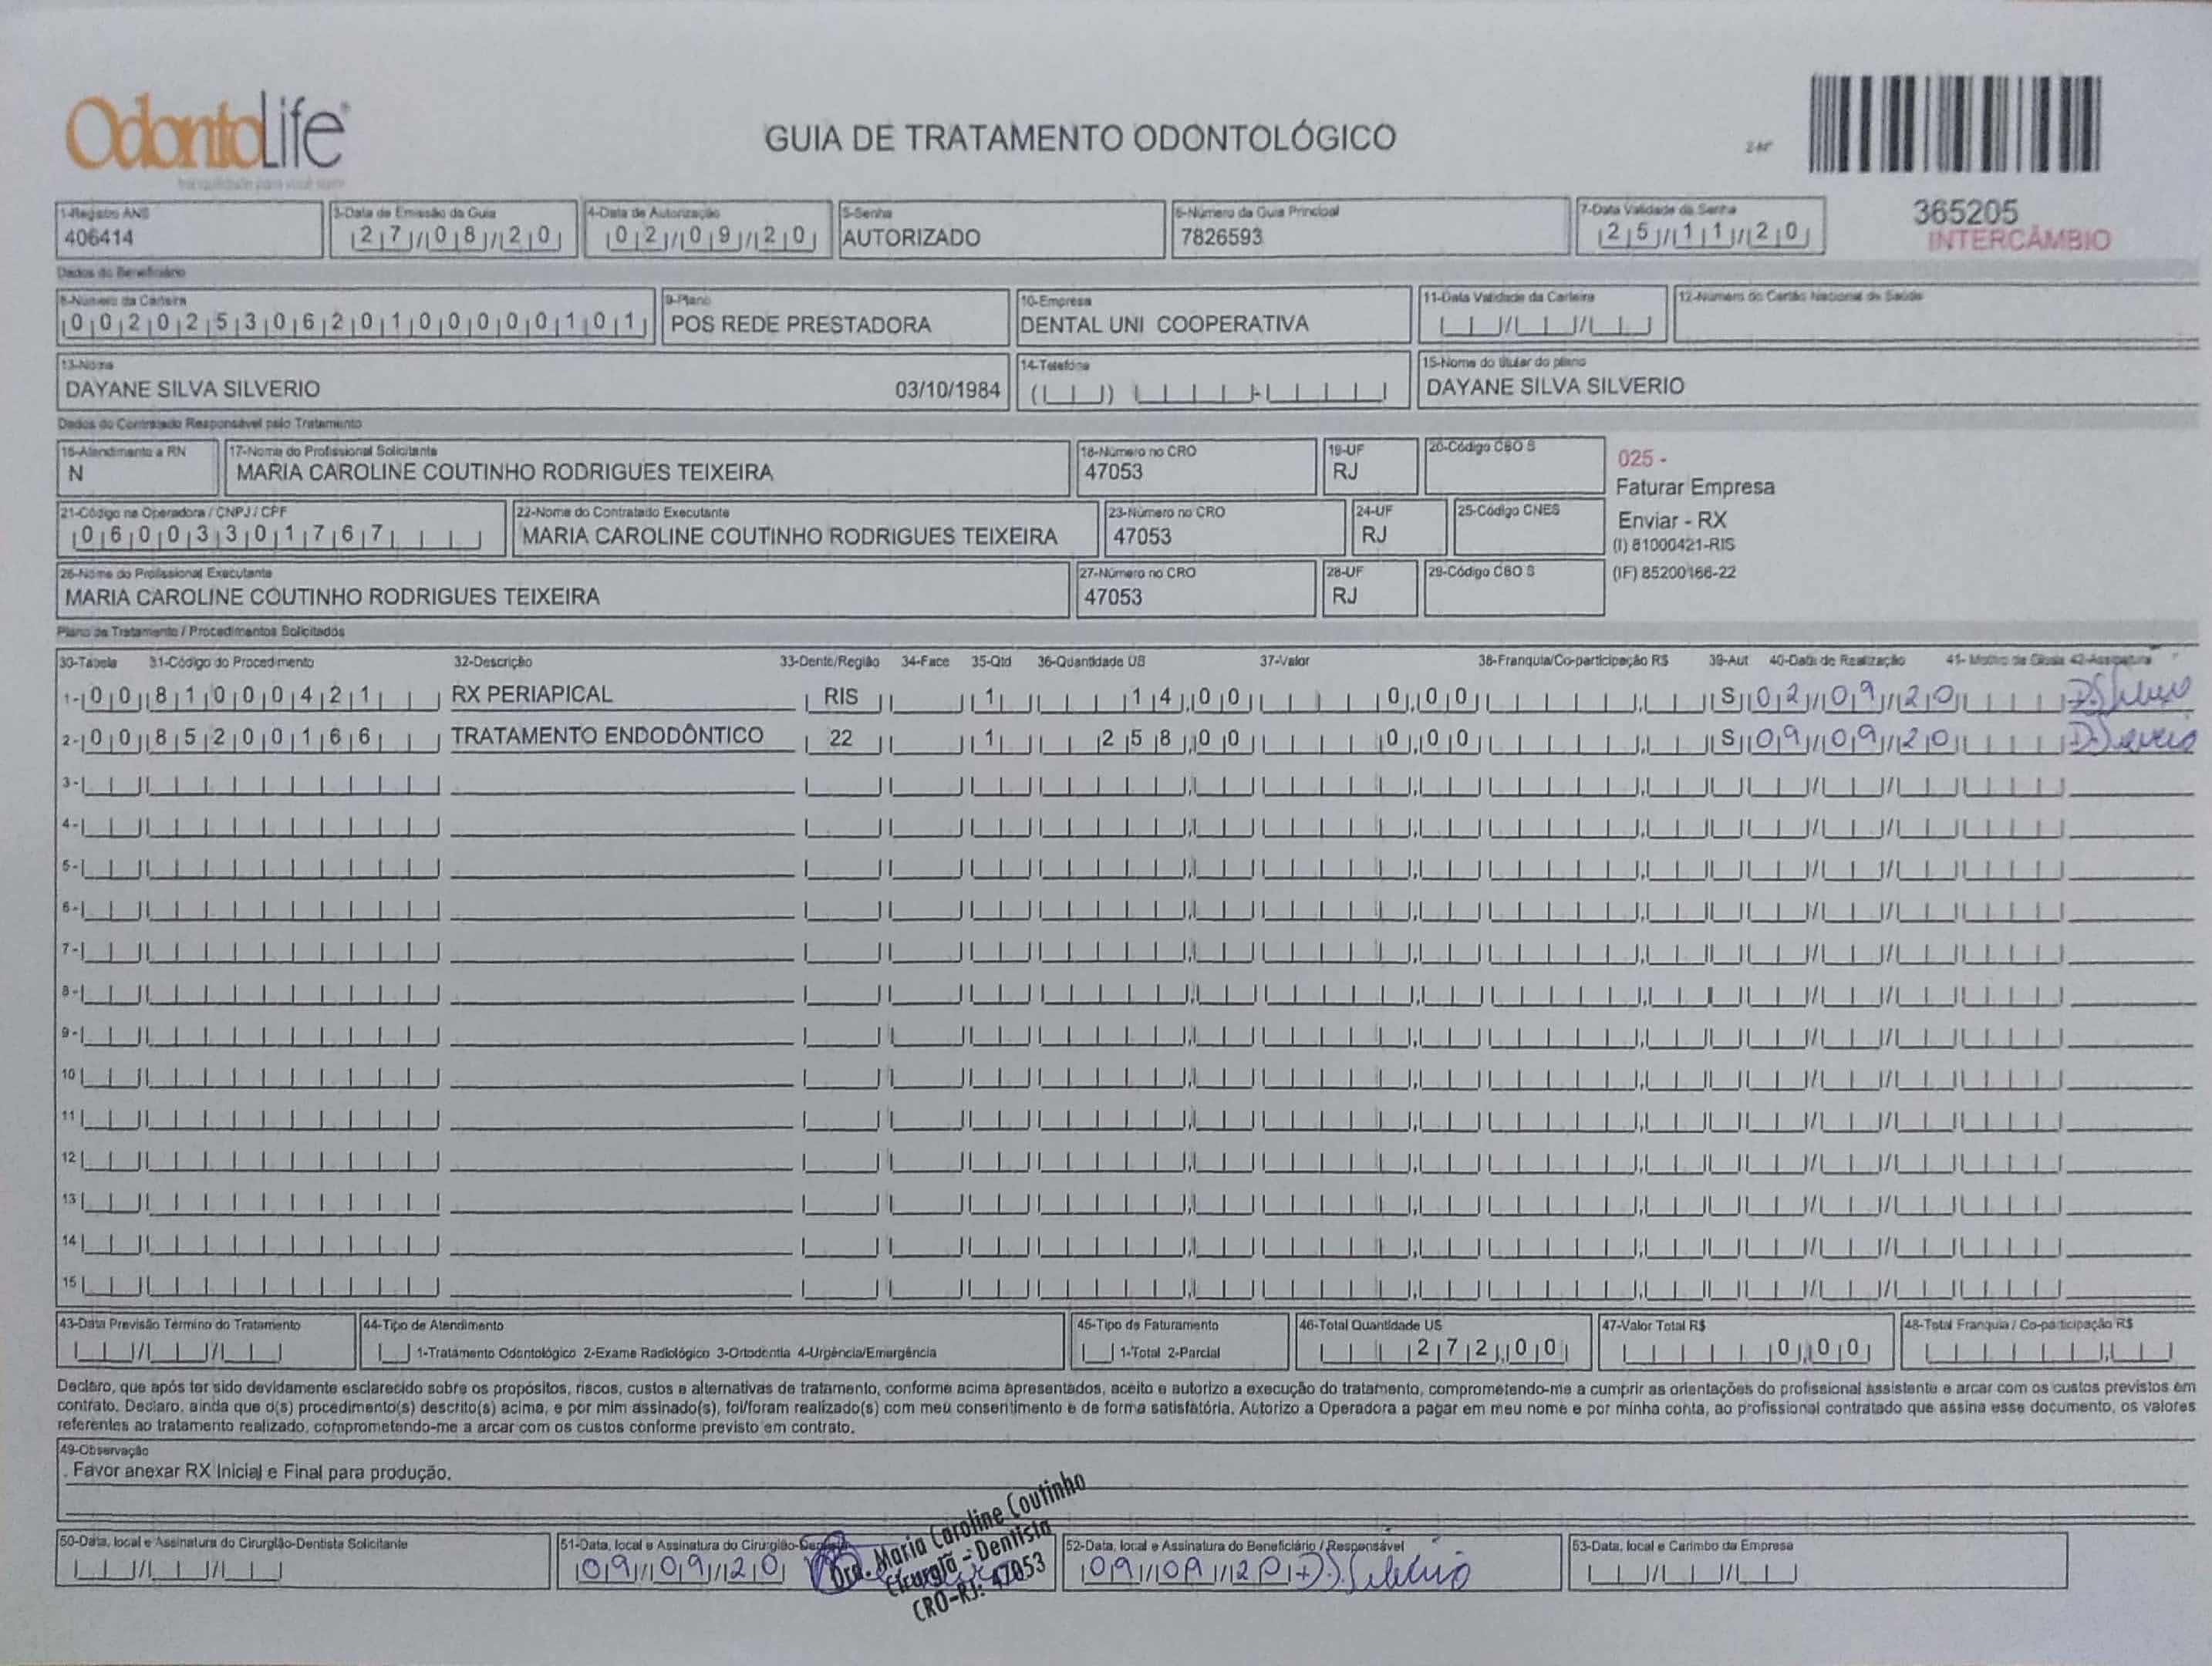 OdontoLife
GUIA DE TRATAMENTO ODONTOLÓGICO
365205
INTERCÂMBIO
1-Registro ANS
406414
3-Data de Emissão da Guia
27/08/20
4-Data de Autorização
02/09/20
5-Senha
AUTORIZADO
6-Número da Guia Principal
7826593
7-Data Validade da Senha
25/11/20
Dados do Beneficiário
8-Número da Carteira
00202530620100000101
9-Plano
POS REDE PRESTADORA
10-Empresa
DENTAL UNI COOPERATIVA
11-Data Validade da Carteira
12-Número do Cartão Nacional de Saúde
13-Nome
DAYANE SILVA SILVERIO 03/10/1984
14-Telefone
15-Nome do titular do plano
DAYANE SILVA SILVERIO
Dados do Contratado Responsável pelo Tratamento
16-Atendimento a RN
N
17-Nome do Profissional Solicitante
MARIA CAROLINE COUTINHO RODRIGUES TEIXEIRA
18-Número no CRO
47053
19-UF
RJ
20-Código CBO S
025 -
Faturar Empresa
Enviar - RX
(I) 81000421-RIS
(IF) 85200166-22
21-Código na Operadora / CNPJ / CPF
06003301767
22-Nome do Contratado Executante
MARIA CAROLINE COUTINHO RODRIGUES TEIXEIRA
23-Número no CRO
47053
24-UF
RJ
25-Código CNES
26-Nome do Profissional Executante
MARIA CAROLINE COUTINHO RODRIGUES TEIXEIRA
27-Número no CRO
47053
28-UF
RJ
29-Código CBO S
Plano de Tratamento / Procedimentos Solicitados
30-Tabela 31-Código do Procedimento 32-Descrição 33-Dente/Região 34-Face 35-Qtd 36-Quantidade US 37-Valor 38-Franquia/Co-participação R$ 39-Aut 40-Data de Realização 41- Motivo de Glosa 42-Assinatura
1- 00 81000421 RX PERIAPICAL RIS 1 14,00 0,00 S 02/09/20 D.Silverio
2- 00 85200166 TRATAMENTO ENDODÔNTICO 22 1 258,00 0,00 S 09/09/20 D.Silverio
3-
4-
5-
6-
7-
8-
9-
10
11
12
13
14
15
43-Data Previsão Término do Tratamento
44-Tipo de Atendimento
1-Tratamento Odontológico 2-Exame Radiológico 3-Ortodontia 4-Urgência/Emergência
45-Tipo de Faturamento
1-Total 2-Parcial
46-Total Quantidade US
272,00
47-Valor Total R$
0,00
48-Total Franquia / Co-participação R$
Declaro, que após ter sido devidamente esclarecido sobre os propósitos, riscos, custos e alternativas de tratamento, conforme acima apresentados, aceito e autorizo a execução do tratamento, comprometendo-me a cumprir as orientações do profissional assistente e arcar com os custos previstos em
contrato. Declaro, ainda que o(s) procedimento(s) descrito(s) acima, e por mim assinado(s), foi/foram realizado(s) com meu consentimento e de forma satisfatória. Autorizo a Operadora a pagar em meu nome e por minha conta, ao profissional contratado que assina esse documento, os valores
referentes ao tratamento realizado, comprometendo-me a arcar com os custos conforme previsto em contrato.
49-Observação
. Favor anexar RX Inicial e Final para produção.
50-Data, local e Assinatura do Cirurgião-Dentista Solicitante
51-Data, local e Assinatura do Cirurgião-Dentista
09/09/20
Dra. Maria Caroline Coutinho
Cirurgiã - Dentista
CRO-RJ: 47053
52-Data, local e Assinatura do Beneficiário / Responsável
09/09/20 D.Silverio
53-Data, local e Carimbo da Empresa